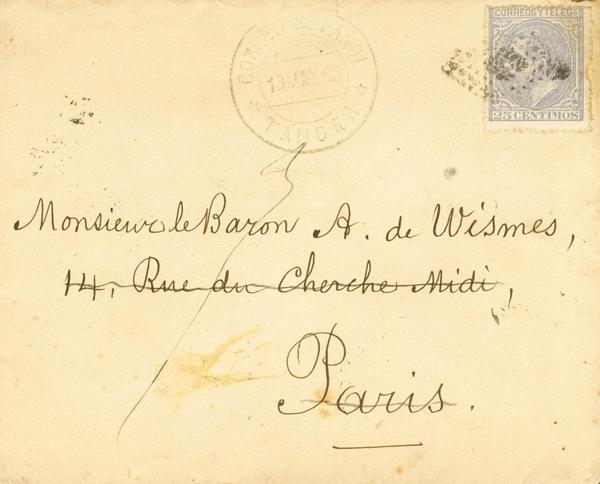 CORREOS Y TELEGS
25 CENTIMOS
TANGER
Monsieur le Baron A. de Wismes,
14, Rue du Cherche Midi,
Paris.